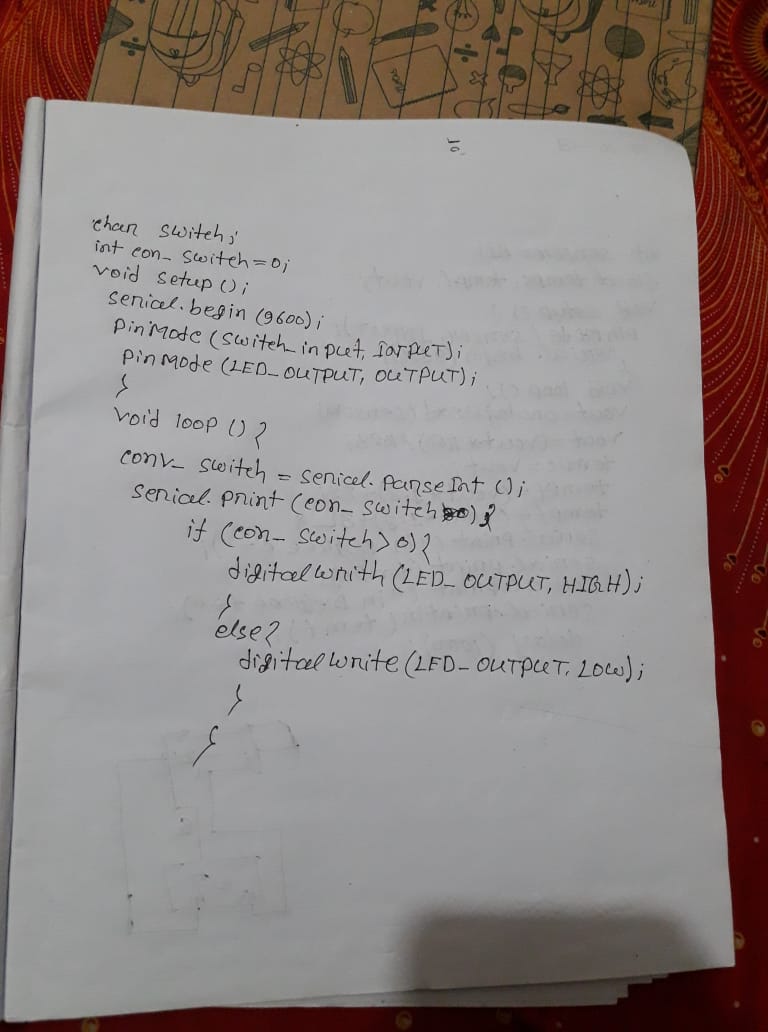 10.
char switch;
int con_ switch = 0;
void setup ();
serial.begin (9600);
PinMode (switch_input, InPUT);
PinMode (LED_OUTPUT, OUTPUT);
}
void loop () {
conv_ switch = serial.parseInt ();
serial.print (con_ switch);
if (con_ switch > 0) {
digitalwrith (LED_OUTPUT, HIGH);
}
else {
digitalwrite (LED_OUTPUT, LOW);
}
}